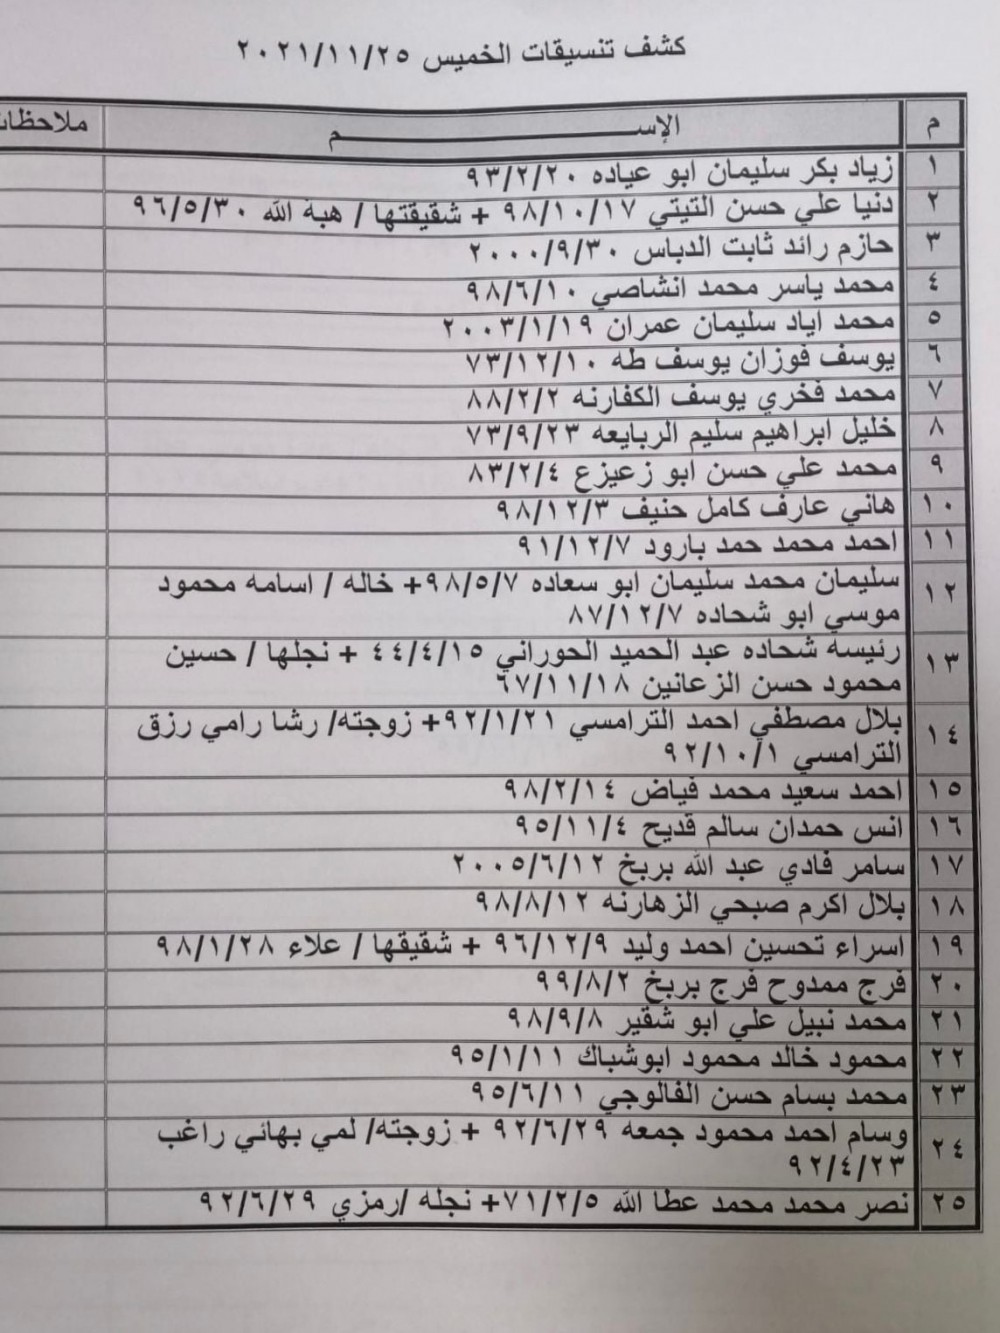 كشف تنسيقات الخميس ٢٠٢١/١١/٢٥
م الإســـــــــــــم ملاحظات
١ زياد بكر سليمان ابو عياده ٩٣/٢/٢٠
٢ دنيا علي حسن التيتي ٩٨/١٠/١٧ + شقيقتها / هبة الله ٩٦/٥/٣٠
٣ حازم رائد ثابت الدباس ٢٠٠٠/٩/٣٠
٤ محمد ياسر محمد انشاصي ٩٨/٦/١٠
٥ محمد اياد سليمان عمران ٢٠٠٣/١/١٩
٦ يوسف فوزان يوسف طه ٧٣/١٢/١٠
٧ محمد فخري يوسف الكفارنه ٨٨/٢/٢
٨ خليل ابراهيم سليم الربايعه ٧٣/٩/٢٣
٩ محمد علي حسن ابو زعيزع ٨٣/٢/٤
١٠ هاني عارف كامل حنيف ٩٨/١٢/٣
١١ احمد محمد حمد بارود ٩١/١٢/٧
١٢ سليمان محمد سليمان ابو سعاده ٩٨/٥/٧+ خاله / اسامه محمود
موسي ابو شحاده ٨٧/١٢/٧
١٣ رئيسه شحاده عبد الحميد الحوراني ٤٤/٤/١٥ + نجلها / حسين
محمود حسن الزعانين ٦٧/١١/١٨
١٤ بلال مصطفي احمد الترامسي ٩٢/١/٢١+ زوجته/ رشا رامي رزق
الترامسي ٩٢/١٠/١
١٥ احمد سعيد محمد فياض ٩٨/٢/١٤
١٦ انس حمدان سالم قديح ٩٥/١١/٤
١٧ سامر فادي عبد الله بربخ ٢٠٠٥/٦/١٢
١٨ بلال اكرم صبحي الزهارنه ٩٨/٨/١٢
١٩ اسراء تحسين احمد وليد ٩٦/١٢/٩ + شقيقها / علاء ٩٨/١/٢٨
٢٠ فرج ممدوح فرج بربخ ٩٩/٨/٢
٢١ محمد نبيل علي ابو شقير ٩٨/٩/٨
٢٢ محمود خالد محمود ابوشباك ٩٥/١/١١
٢٣ محمد بسام حسن الفالوجي ٩٥/٦/١١
٢٤ وسام احمد محمود جمعه ٩٢/٦/٢٩ + زوجته/ لمي بهائي راغب
٩٢/٤/٢٣
٢٥ نصر محمد محمد عطا الله ٧١/٢/٥+ نجله /رمزي ٩٢/٦/٢٩